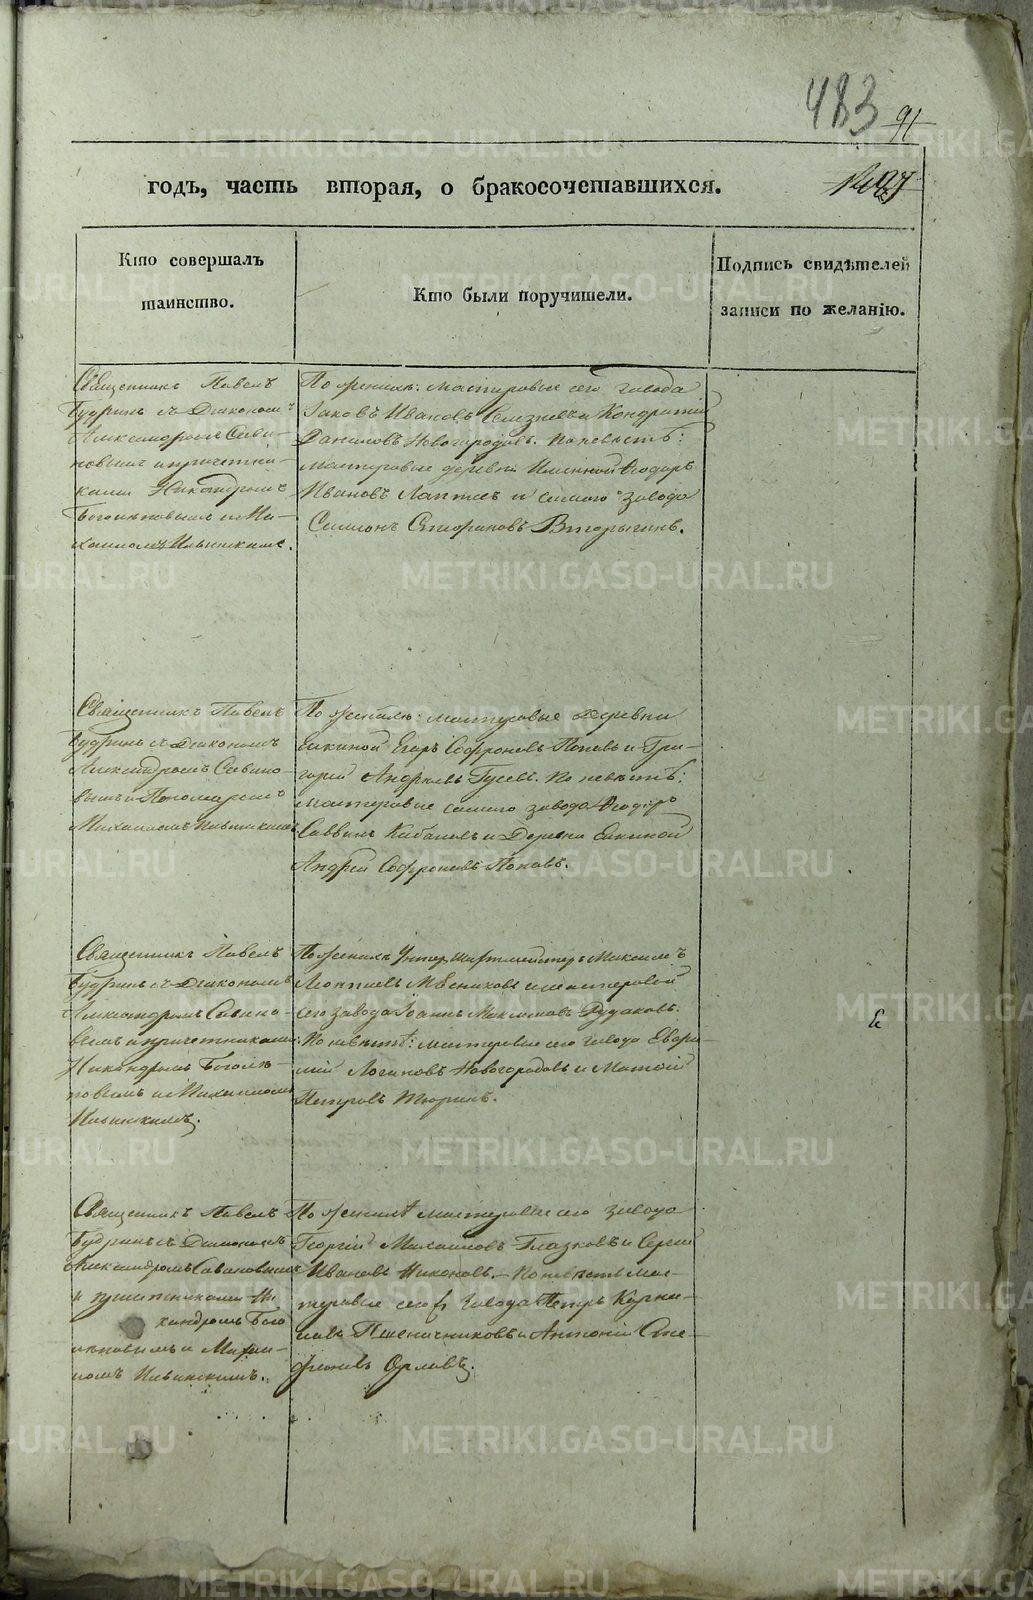 483
91
годъ, часть вторая, о бракосочетавшихся.
Кто совершалъ
таинство.
Кто были поручители.
Подпись свидѣтелей
записи по желанію.
Священникъ Павелъ
Будринъ съ Діакономъ
Александромъ Сави-
новымъ и причетни-
ками Никандромъ
Боголѣповымъ и Ми-
хаиломъ Ильинскимъ.
По женихѣ: мастеровые сего завода
Іаковъ Ивановъ Селезневъ и Кондратій
Даниловъ Новогородовъ. По невѣстѣ:
мастеровые деревни Ѳеодоръ
Ивановъ Лаптевъ и самого завода
Симеонъ Стефановъ Вторыгинъ.
Священникъ Павелъ
Будринъ съ Діакономъ
Александромъ Савино-
вымъ и Пономаремъ
Михаиломъ Ильинскимъ
По женихѣ: мастеровые деревни
Елкиной Егоръ Софроновъ Поповъ и Гри-
горій Андреевъ Гусевъ. По невѣстѣ:
мастеровые самого завода Ѳеодоръ
Саввинъ Кабановъ и Деревни Елкиной
Андрей Софроновъ Поповъ.
Священникъ Павелъ
Будринъ съ Діакономъ
Александромъ Савино-
вымъ и причетниками
Никандромъ Боголѣ-
повымъ и Михаиломъ
Ильинскимъ.
По женихѣ Унтер Шихтмейстеръ Максимъ
Леонтіевъ и мастеровой
сего завода Іоаннъ Максимовъ Рудаковъ.
По невѣстѣ: мастеровые сего завода Евфи-
мій Логиновъ Новогородовъ и Матѳей
Петровъ Тюринъ.
Священникъ Павелъ
Будринъ съ Діакономъ
Александромъ Савиновымъ
и причетниками Ни-
кандромъ Бого
лѣповымъ и Михаи-
ломъ Ильинскимъ.
По женихѣ мастеровые сего завода
Георгій Михаиловъ Глазковъ и Сергей
Ивановъ Никоновъ. - По невѣстѣ мас-
теровые сего завода Петръ Корни-
ловъ Пшеничниковъ и Антоній Сте-
фановъ Орловъ.
METRIKI.GASO-URAL.RU